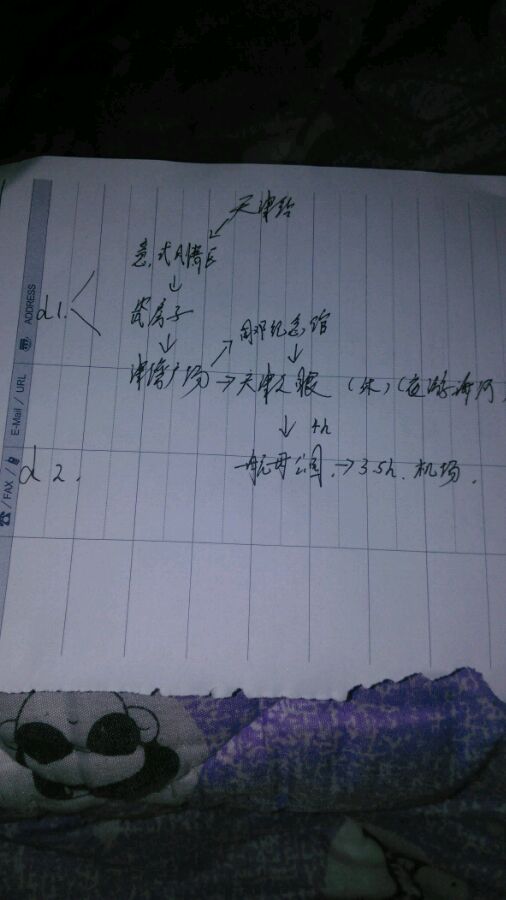 天津站
意式风情区
d1.
瓷房子
周邓纪念馆
津湾广场 → 天津之眼 (休) (夜游海河)
↓ 4h
d2.
航母公园 → 3.5h. 机场.
ADDRESS
E-Mail / URL
/ FAX /